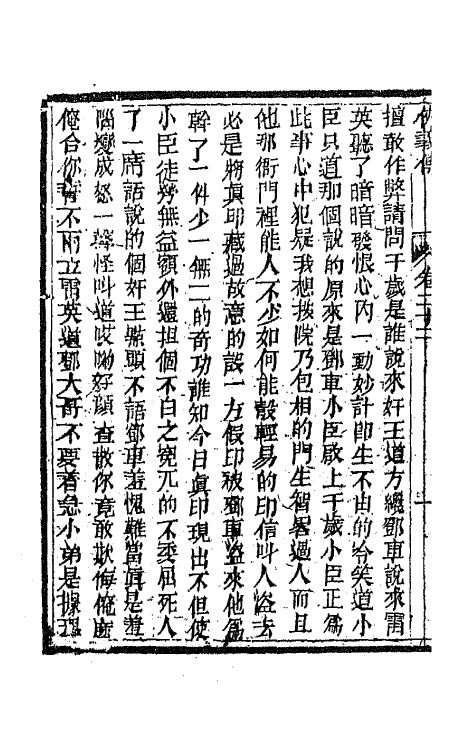 俠義傳
卷二十
擅敢作弊請問千歲是誰說來奸王道方纔鄧車說來雷
英聽了暗暗發恨心內一動妙計即生不由的冷笑道小
臣只道那個說的原來是鄧車小臣啟上千歲小臣正爲
此事心中犯疑我想按院乃包相的門生智畧過人而且
他那衙門裡能人不少如何能彀輕易的印信叫人盜去
必是將眞印藏過故意的設一方假印被鄧車盜來他爲
幹了一件少一無二的奇功誰知今日眞印現出不但使
小臣徒勞無益額外還担個不白之寃兀的不委屈死人
了一席話說的個奸王點頭不語鄧車羞愧難當眞是羞
惱變成怒一聲怪叫道哎喲好顔查散你竟敢欺侮俺麽
俺合你誓不兩立雷英道鄧大哥不要着急小弟是據理